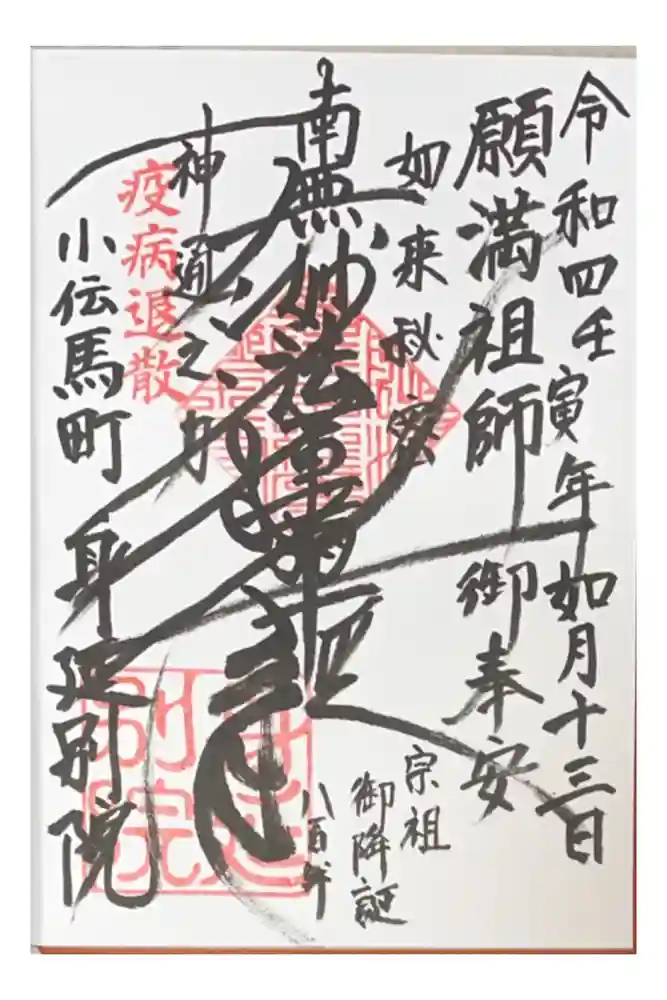 令和四壬寅年 如月十三日
願満祖師 御奉安
如来秘密
宗祖
御降誕
八百年
南無妙法蓮華経
神通之力
疫病退散
小伝馬町 身延別院
身延
別院